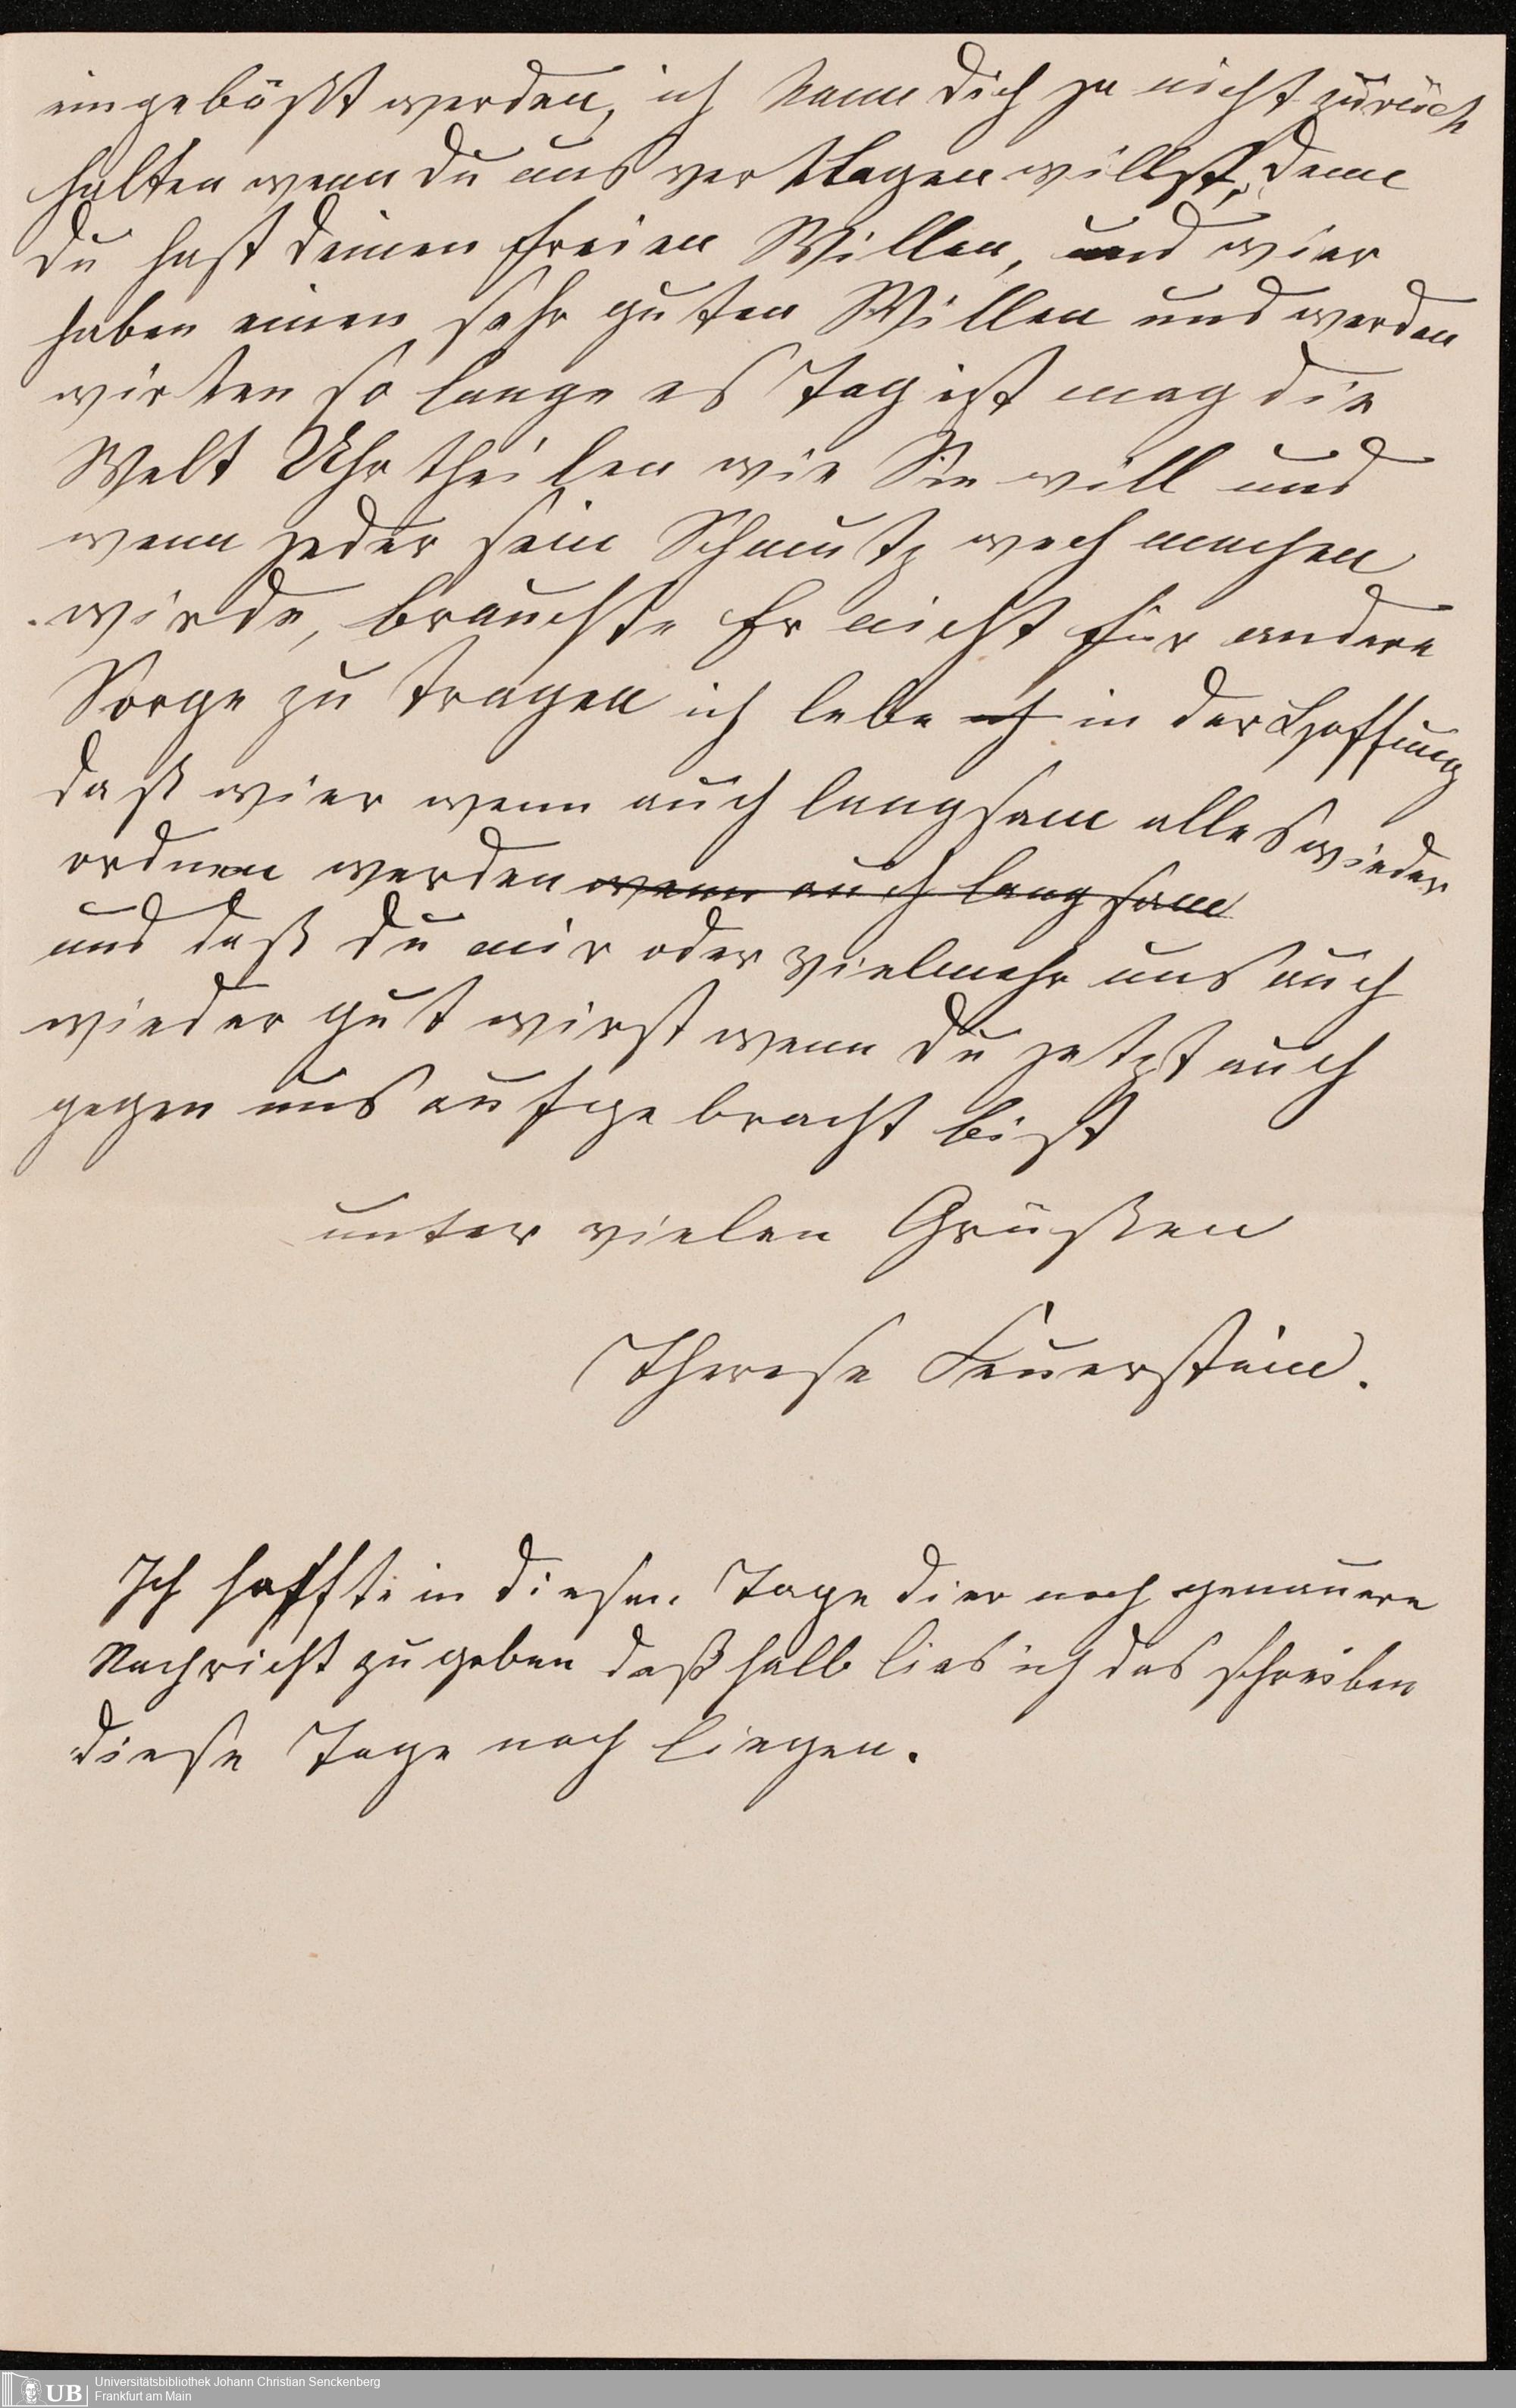 eingebüßt werden, ich kann dich ja nicht zurück
halten wenn du uns verklagen willst, denn
du hast deinen freien Willen, und wier
haben einen sehr guten Willen und werden
wirken so lange es Tag ist mag die
Welt Uhrtheilen wie Sie will und
wenn jeder sein Schmutz wech machen
wirde, brauchte Er nicht für andere
Sorge zu tragen ich lebe ich in der Hoffung
daß wier wenn auch langsam alles wieder
ordnen werden wenn auch langsam
und daß du mir oder vielmehr uns auch
wieder gut wirst wenn du jetzt auch
gegen uns aufgebracht bist
unter vielen Grüßen
Therese Feuerstein.
Ich hoffte in diesen Tage dier noch genauere
Nachricht zu geben daßhalb lies ich das schreiben
diese Tage noch liegen.
UB Universitätsbibliothek Johann Christian Senckenberg
Frankfurt am Main